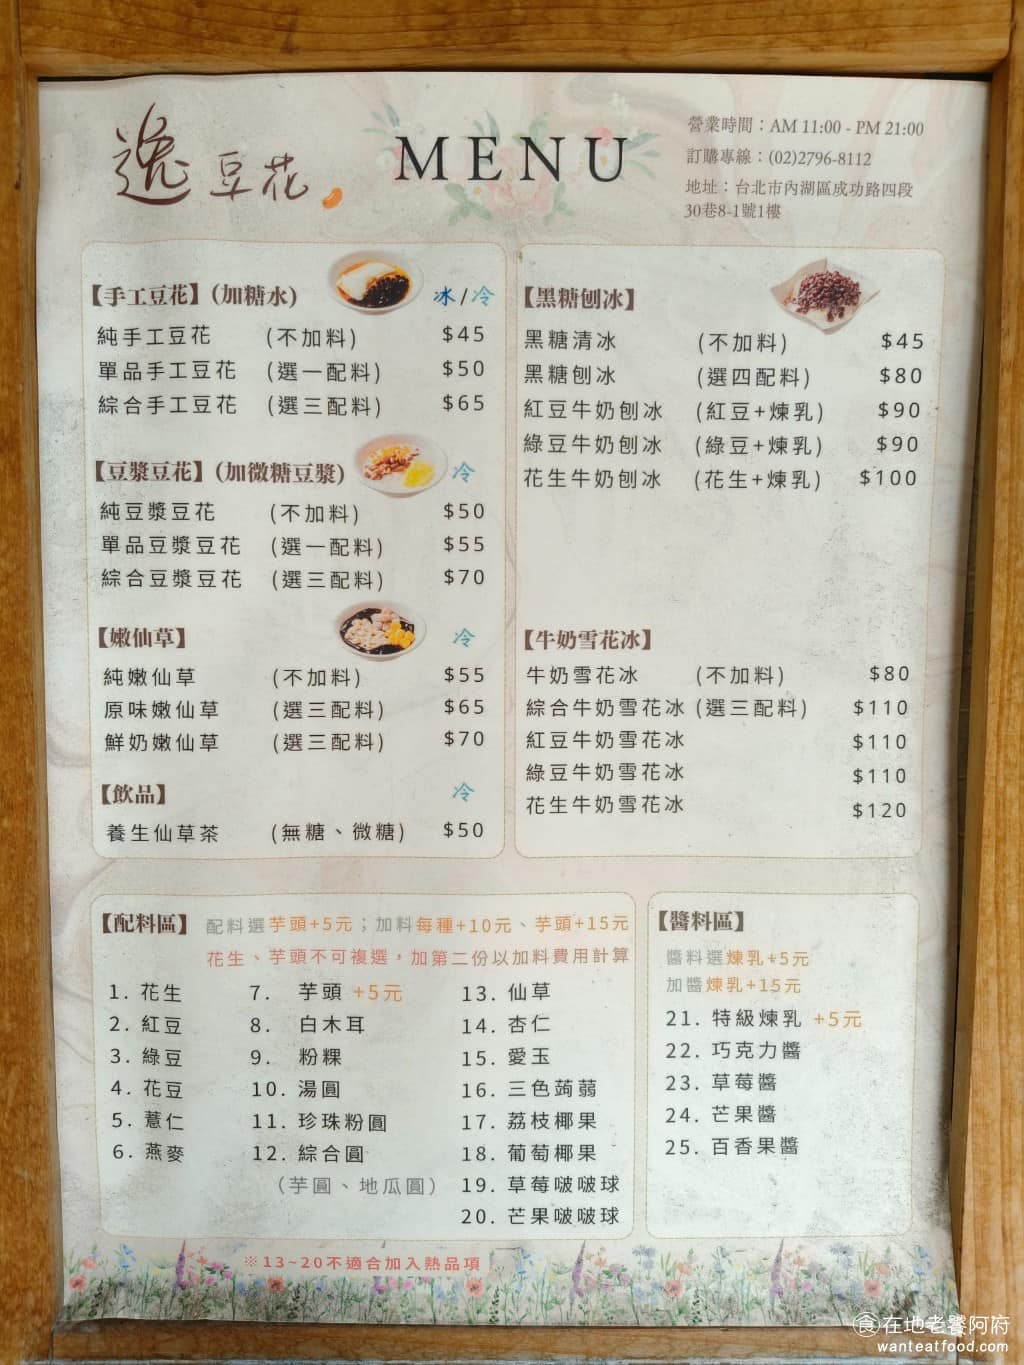 逸豆花
MENU
營業時間：AM 11:00 - PM 21:00
訂購專線：(02)2796-8112
地址：台北市內湖區成功路四段
30巷8-1號1樓
【手工豆花】(加糖水) 冰/冷
純手工豆花 (不加料) $45
單品手工豆花 (選一配料) $50
綜合手工豆花 (選三配料) $65
【豆漿豆花】(加微糖豆漿) 冷
純豆漿豆花 (不加料) $50
單品豆漿豆花 (選一配料) $55
綜合豆漿豆花 (選三配料) $70
【嫩仙草】 冷
純嫩仙草 (不加料) $55
原味嫩仙草 (選三配料) $65
鮮奶嫩仙草 (選三配料) $70
【飲品】 冷
養生仙草茶 (無糖、微糖) $50
【黑糖刨冰】
黑糖清冰 (不加料) $45
黑糖刨冰 (選四配料) $80
紅豆牛奶刨冰 (紅豆+煉乳) $90
綠豆牛奶刨冰 (綠豆+煉乳) $90
花生牛奶刨冰 (花生+煉乳) $100
【牛奶雪花冰】
牛奶雪花冰 (不加料) $80
綜合牛奶雪花冰 (選三配料) $110
紅豆牛奶雪花冰 $110
綠豆牛奶雪花冰 $110
花生牛奶雪花冰 $120
【配料區】 配料選芋頭+5元；加料每種+10元、芋頭+15元
花生、芋頭不可複選，加第二份以加料費用計算
1. 花生
2. 紅豆
3. 綠豆
4. 花豆
5. 薏仁
6. 燕麥
7. 芋頭 +5元
8. 白木耳
9. 粉粿
10. 湯圓
11. 珍珠粉圓
12. 綜合圓
（芋圓、地瓜圓）
13. 仙草
14. 杏仁
15. 愛玉
16. 三色蒟蒻
17. 荔枝椰果
18. 葡萄椰果
19. 草莓啵啵球
20. 芒果啵啵球
【醬料區】
醬料選煉乳+5元
加醬煉乳+15元
21. 特級煉乳 +5元
22. 巧克力醬
23. 草莓醬
24. 芒果醬
25. 百香果醬
※13~20不適合加入熱品項
食在地老饕阿府
wanteatfood.com